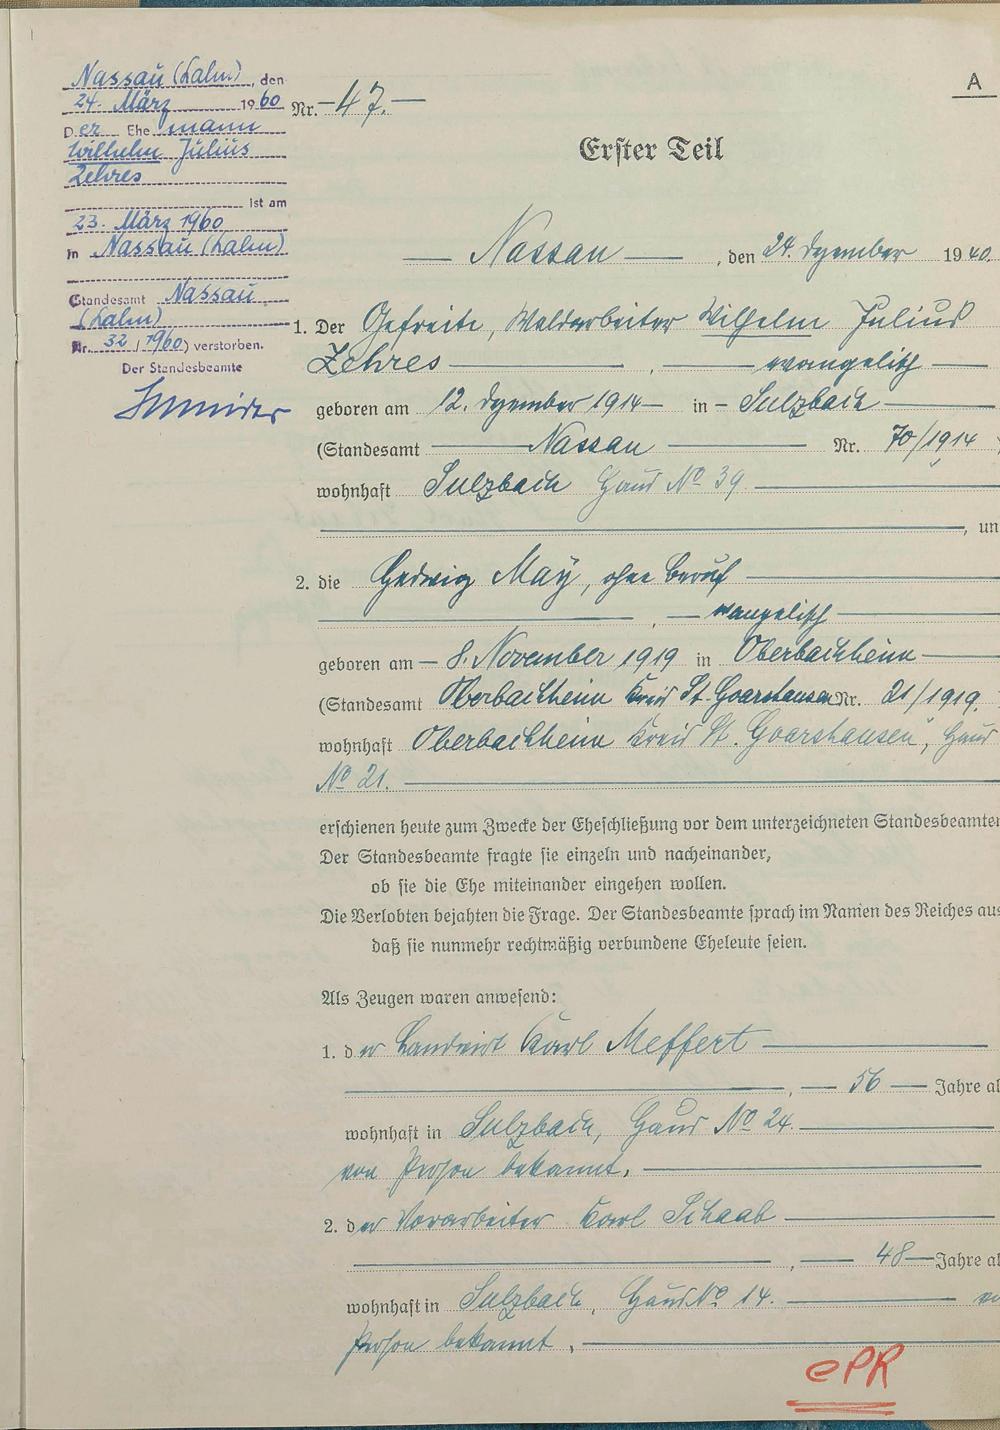 Nassau (Lahn), den
24. März 1960
Der Ehemann
Wilhelm Julius
Zehres
ist am
23. März 1960
in Nassau (Lahn)
Standesamt Nassau
(Lahn)
Nr. 32 / 1960) verstorben.
Der Standesbeamte
A
Nr. -47.-
Erster Teil
Nassau, den 24. Dezember 1940.
1. Der Gefreite, Waldarbeiter Wilhelm Julius
Zehres, evangelisch
geboren am 12. Dezember 1914 in Sulzbach
(Standesamt Nassau Nr. 70/1914
wohnhaft Sulzbach Haus No 39
, un
2. die Hedwig Maÿ, ohne Beruf
, evangelisch
geboren am 8. November 1919 in Oberbachheim
(Standesamt Oberbachheim Kreis St. Goarshausen Nr. 21/1919.
wohnhaft Oberbachheim Kreis St. Goarshausen, Haus
No 21.
erschienen heute zum Zwecke der Eheschließung vor dem unterzeichneten Standesbeamten
Der Standesbeamte fragte sie einzeln und nacheinander,
ob sie die Ehe miteinander eingehen wollen.
Die Verlobten bejahten die Frage. Der Standesbeamte sprach im Namen des Reiches aus
daß sie nunmehr rechtmäßig verbundene Eheleute seien.
Als Zeugen waren anwesend:
1. der Landwirt Karl Meffert
, 56 Jahre al
wohnhaft in Sulzbach, Haus No 24.
von Person bekannt.
2. der Vorarbeiter Karl Schaab
, 48 Jahre al
wohnhaft in Sulzbach, Haus No 14. vo
Person bekannt,
ePR